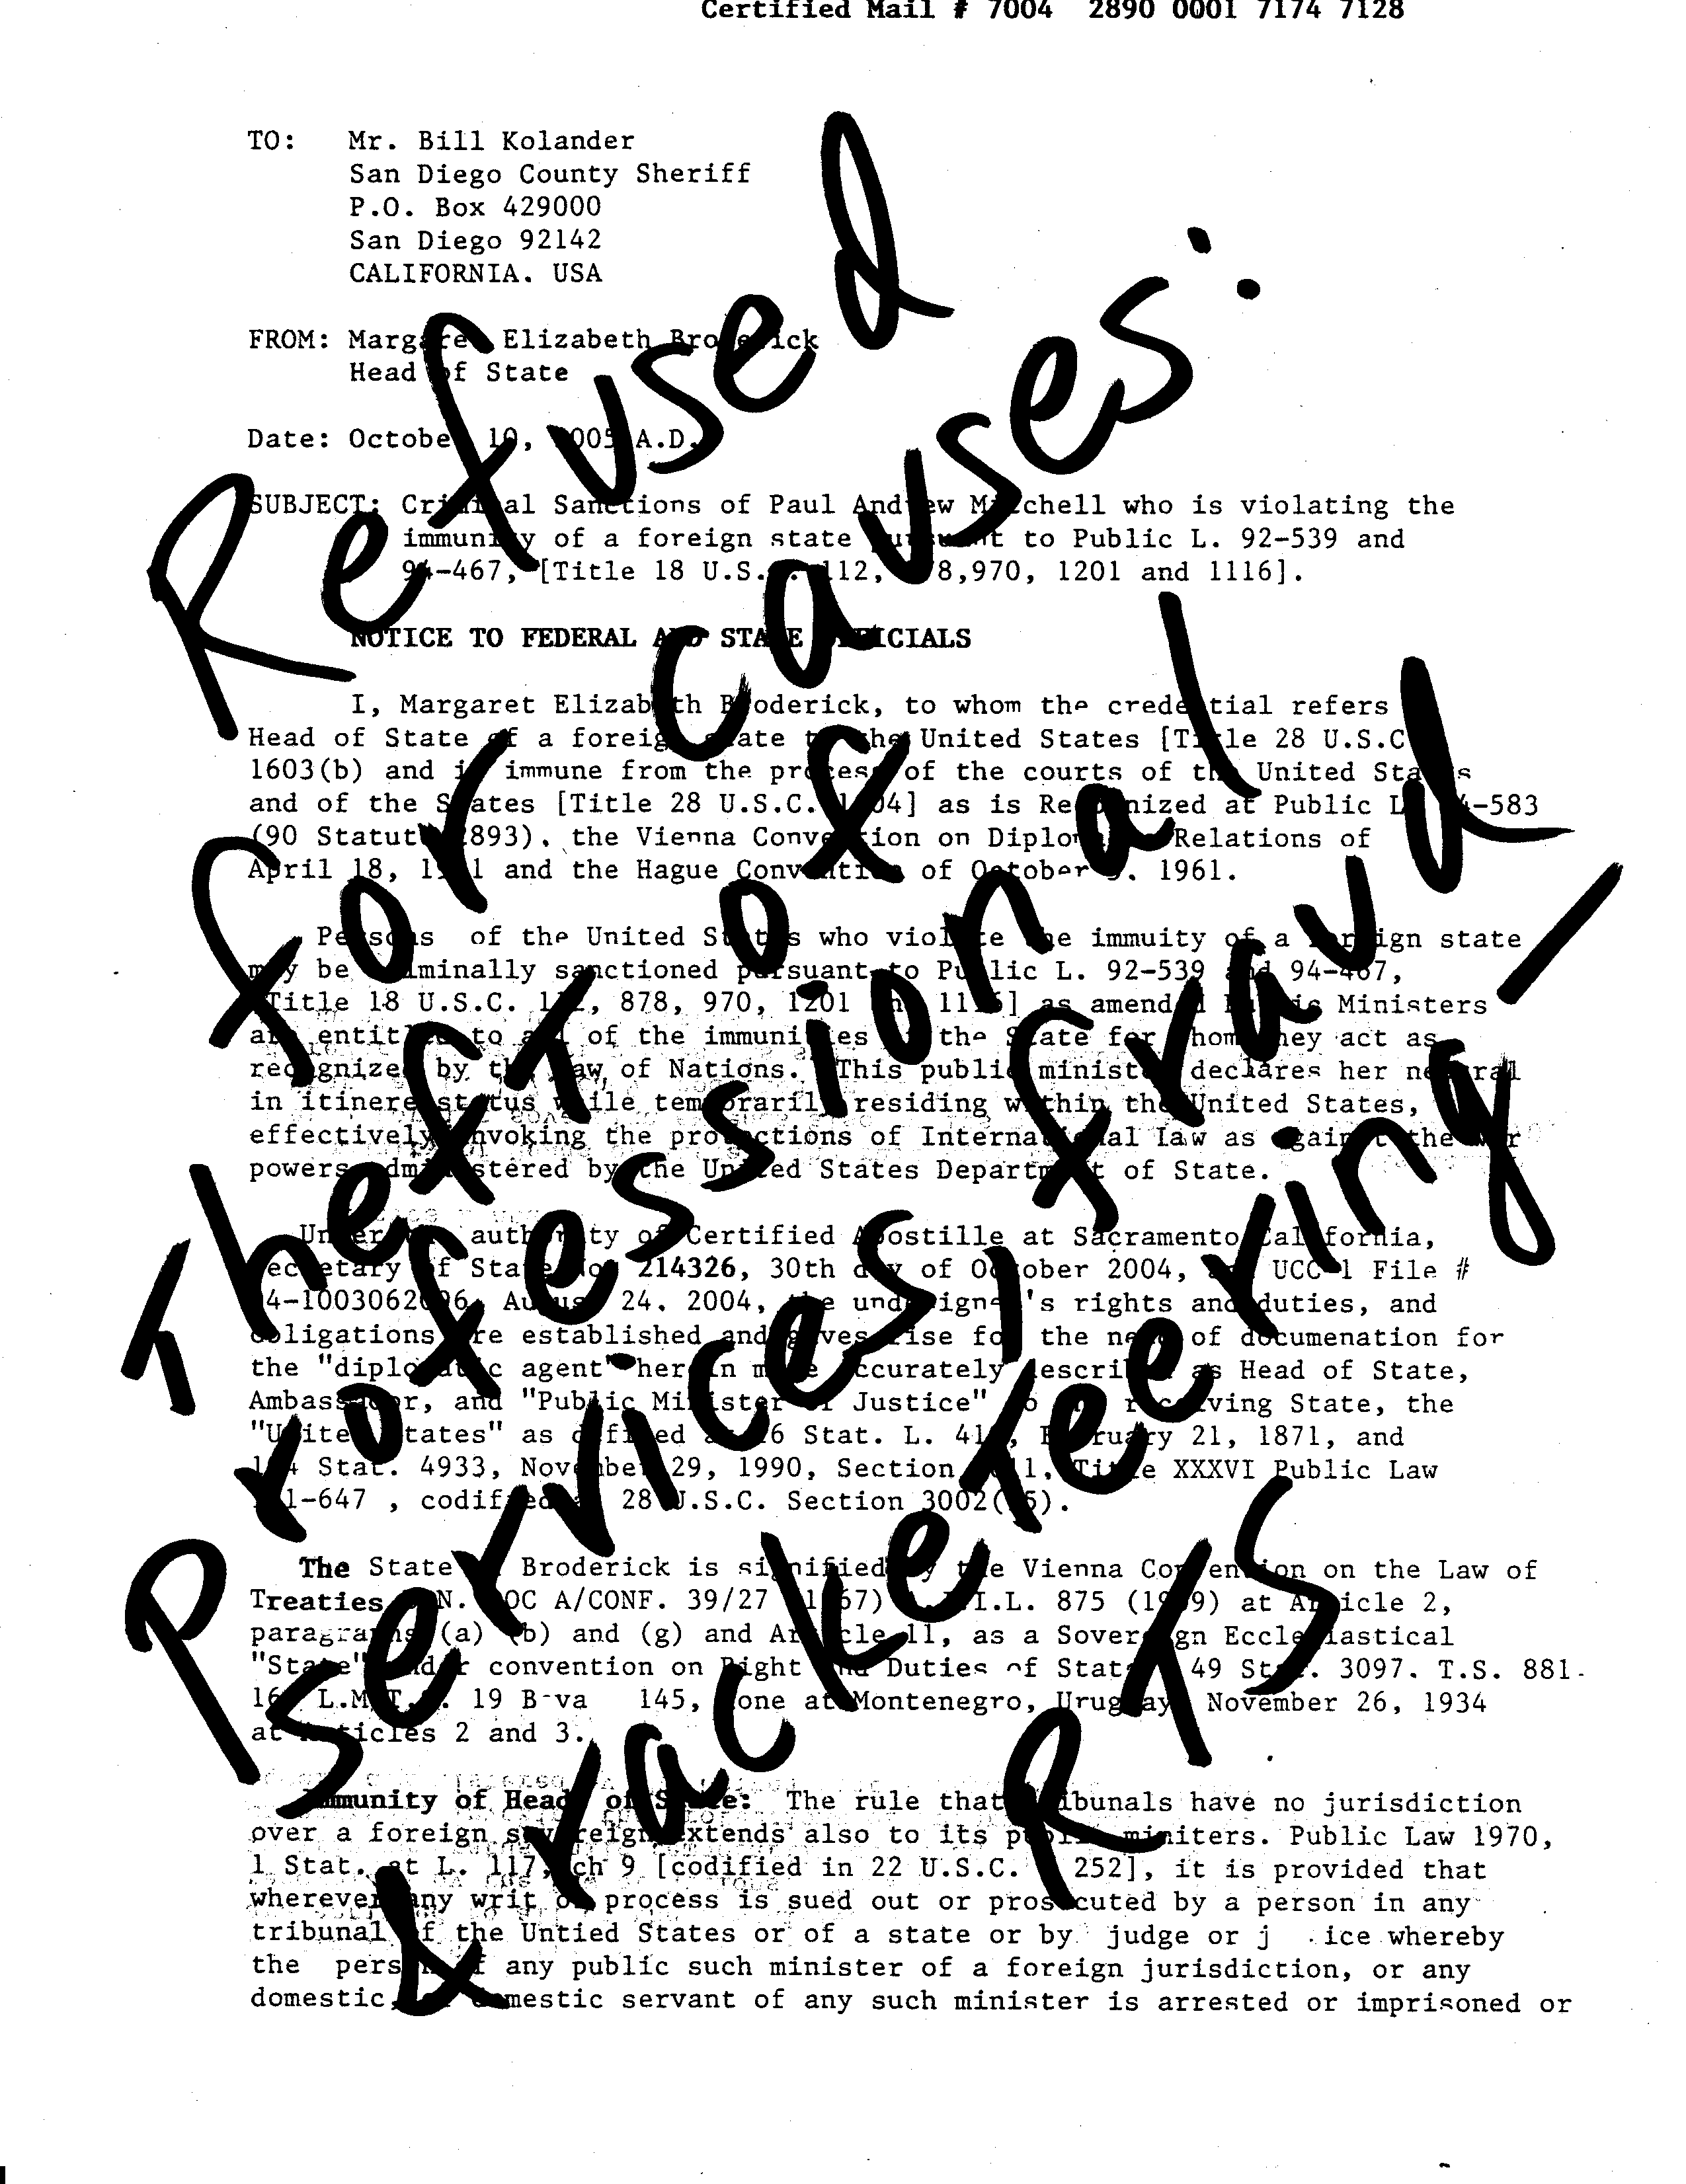 Certified Mail # 7004 2890 0001 7174 7128
TO: Mr. Bill Kolander
San Diego County Sheriff
P.O. Box 429000
San Diego 92142
CALIFORNIA. USA
FROM: Margaret Elizabeth Broderick
Head of State
Date: October 10, 2005 A.D.
SUBJECT: Criminal Sanctions of Paul Andrew Mitchell who is violating the
immunity of a foreign state pursuant to Public L. 92-539 and
94-467, [Title 18 U.S.C. 112, 878,970, 1201 and 1116].
NOTICE TO FEDERAL AND STATE OFFICIALS
I, Margaret Elizabeth Broderick, to whom the credential refers
Head of State of a foreign state to the United States [Title 28 U.S.C
1603(b) and is immune from the process of the courts of the United States
and of the States [Title 28 U.S.C. 1604] as is Recognized at Public L. 94-583
(90 Statute 2893), the Vienna Convention on Diplomatic Relations of
April 18, 1961 and the Hague Convention of October 5, 1961.
Persons of the United States who violate the immuity of a foreign state
may be criminally sanctioned pursuant to Public L. 92-539 and 94-467,
[Title 18 U.S.C. 112, 878, 970, 1201 and 1116] as amended Public Ministers
are entitled to all of the immunities of the State for whom they act as
recognized by the Law of Nations. This public minister declares her neutral
in itinere status while temporarily residing within the United States,
effectively invoking the protections of International law as against the war
powers administered by the United States Department of State.
Under the authority of Certified Apostille at Sacramento California,
Secretary of State No. 214326, 30th day of October 2004, and UCC-1 File #
August 24. 2004, the undersigned's rights and duties, and
obligations are established and gives rise for the need of documenation for
the "diplomatic agent" herein more accurately described as Head of State,
Ambassador, and "Public Minister of Justice" to the receiving State, the
"United States" as defined at 16 Stat. L. 419, February 21, 1871, and
104 Stat. 4933, November 29, 1990, Section 3611, Title XXXVI Public Law
101-647 , codified at 28 U.S.C. Section 3002(15).
The State of Broderick is signified by the Vienna Convention on the Law of
Treaties U.N. DOC A/CONF. 39/27 A.J.I.L. 875 (1969) at Article 2,
paragraphs (a) (b) and (g) and Article 11, as a Sovereign Ecclesiastical
"State" under convention on Right and Duties of States 49 Stat. 3097. T.S. 881.
L.N.T.S. 19 B-va 145, done at Montenegro, Uruguay November 26, 1934
at Articles 2 and 3.
Immunity of Head of State: The rule that tribunals have no jurisdiction
over a foreign sovereign extends also to its public miniters. Public Law 1970,
1 Stat. at L. 117, ch 9 [codified in 22 U.S.C. 252], it is provided that
wherever any writ or process is sued out or prosecuted by a person in any
tribunal of the Untied States or of a state or by judge or j ice whereby
the person of any public such minister of a foreign jurisdiction, or any
domestic, or domestic servant of any such minister is arrested or imprisoned or
Refused
for causes:
Theft of
Professional
Services, fraud
& racketeering –
RTS